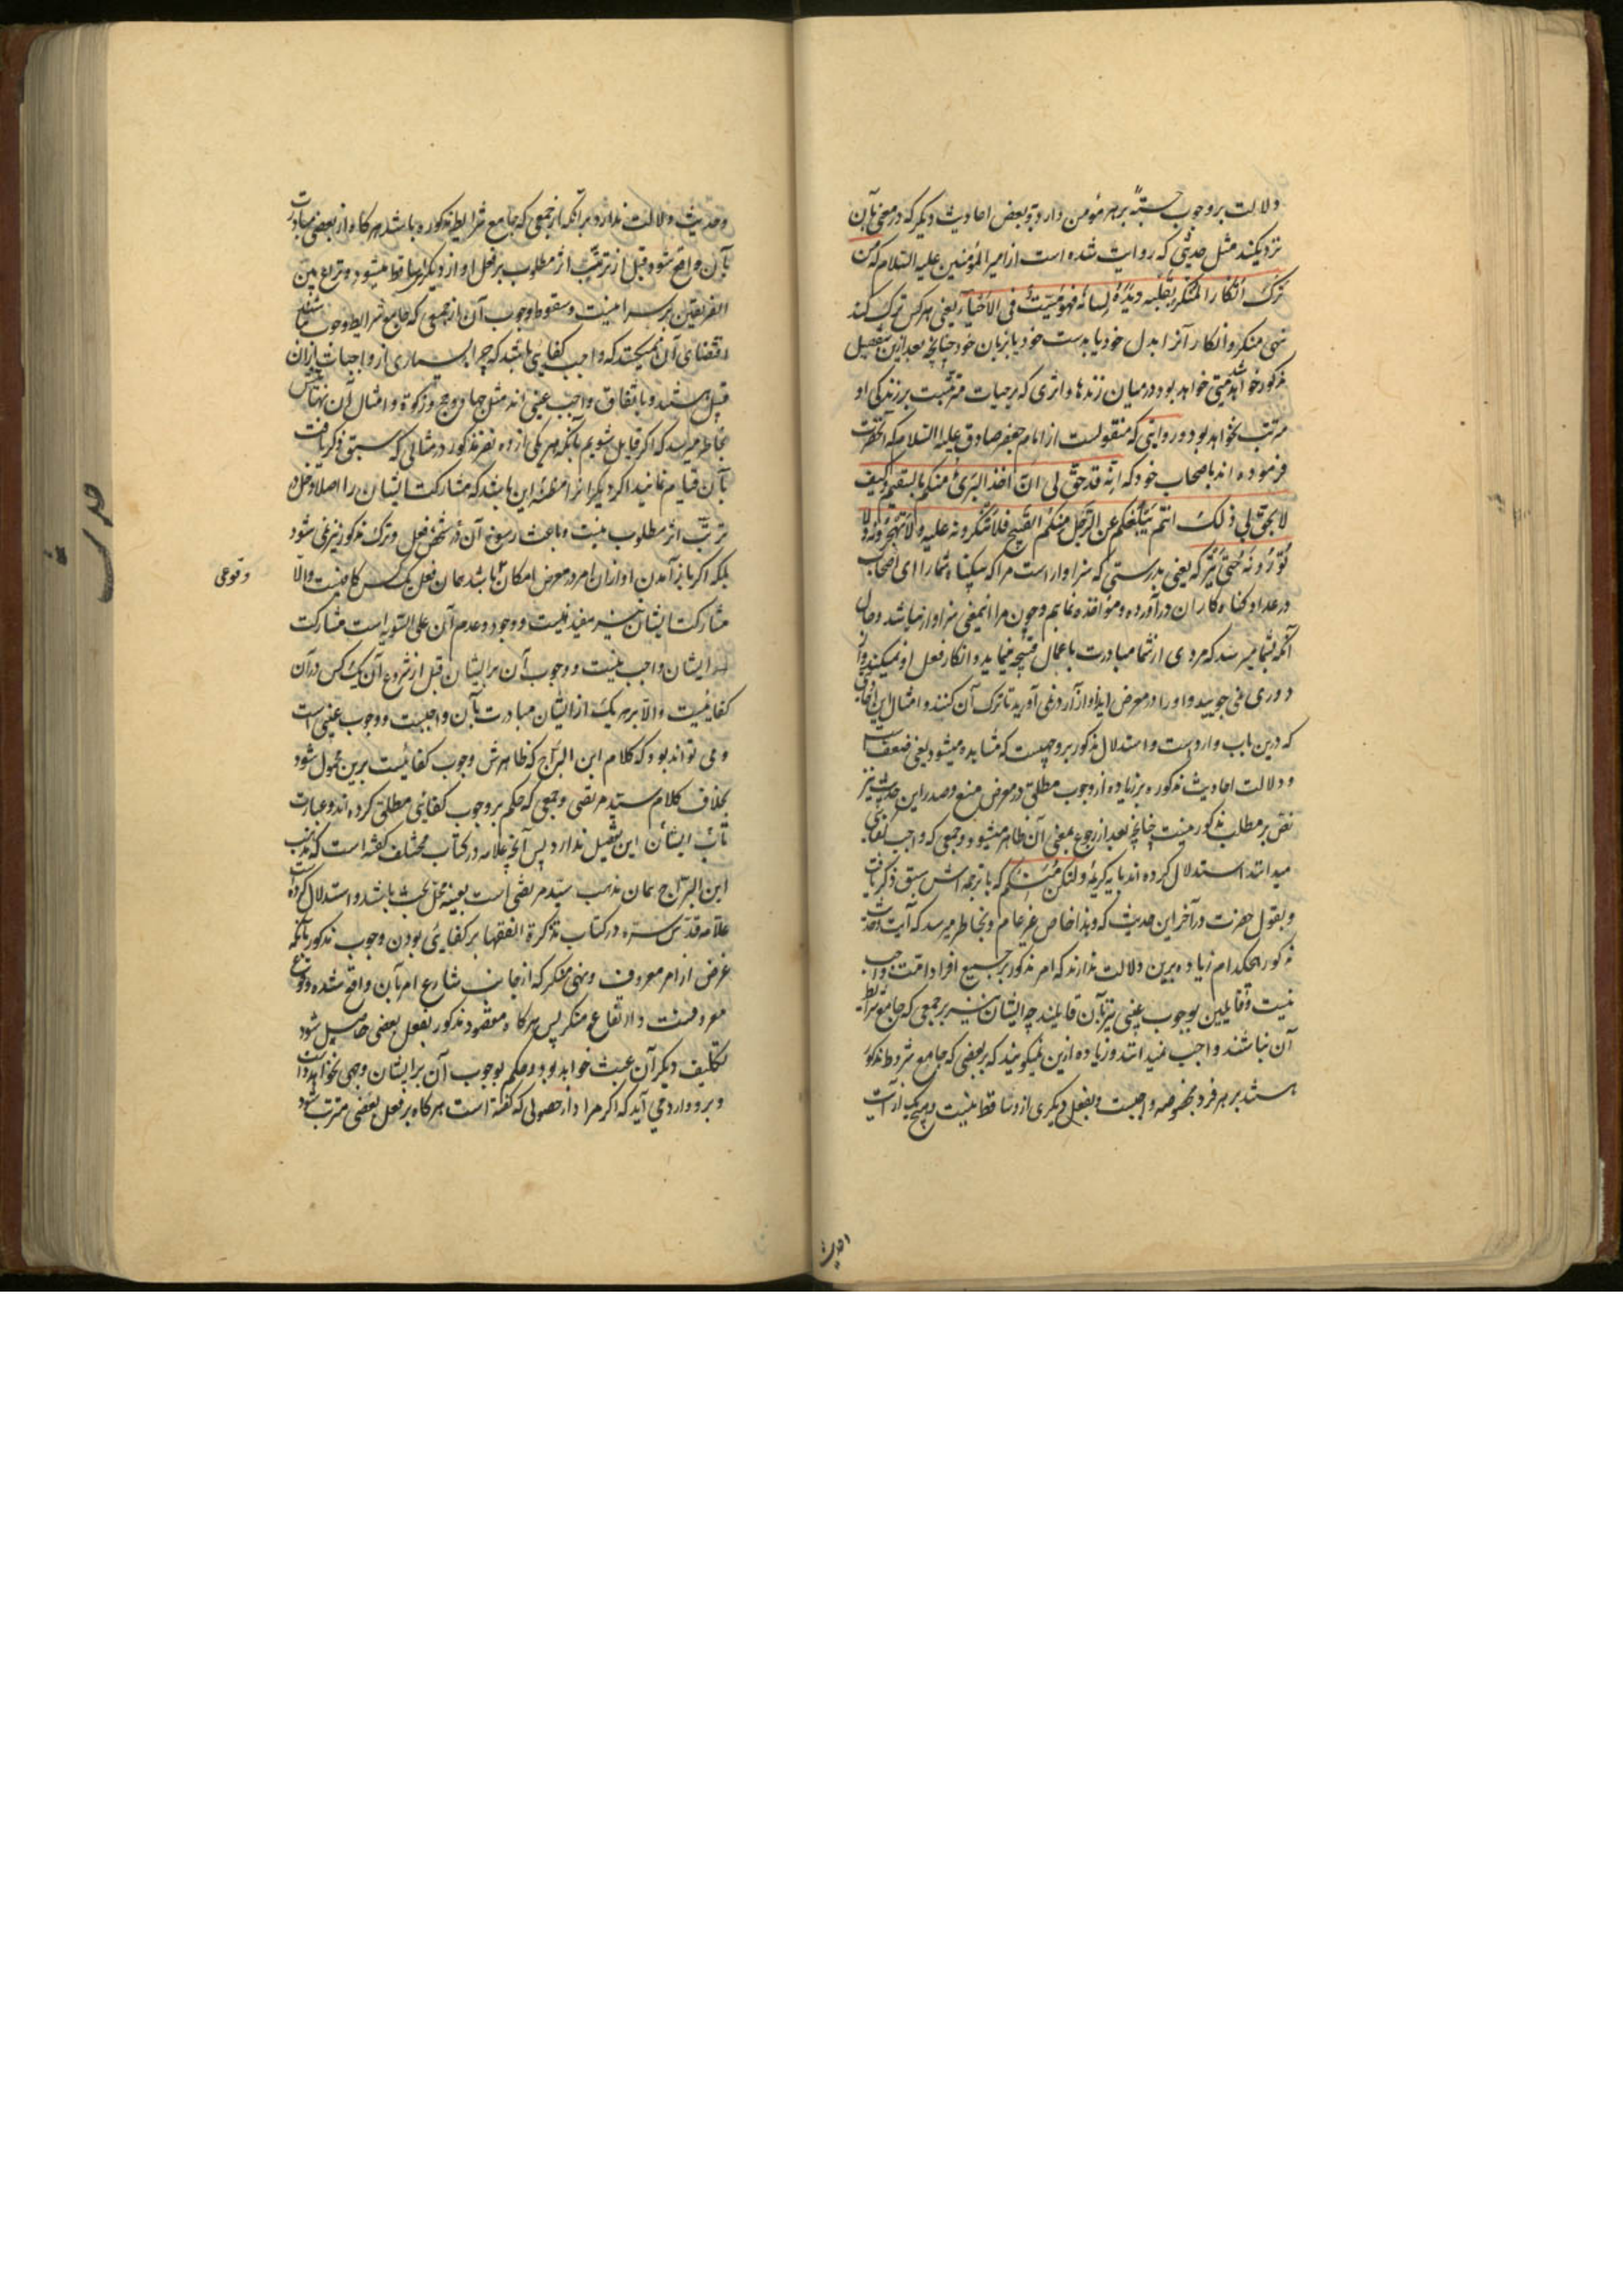 دلالت بر وجوب حسبة بر هر مؤمن دارد و بعض احادیث دیگر که در معنی بآن
نزدیکند مثل حدیثی که روایت شده است از امیر المؤمنین علیه السلام که من
ترک انکار المنکر بقلبه ویده ولسانه فهو میت فی الاحیاء یعنی هر کس ترک کند
نهی منکر و انکار آنرا بدل خود یا بدست خود یا بزبان خود چنانچه بعد ازین بتفصیل
مذکور خواهد شد میتی خواهد بود در میان زندها و اثری که بر حیات مترتبست بر زندگی او
مرتب نخواهد بود و در روایتی که منقولست از امام جعفر صادق علیه السلام که آنحضرت
فرموده اند باصحاب خود که انه قد حق لی ان آخذ البرئ منکم بالسقیم وکیف
لا یحق لی ذلک وانتم یبلغکم عن الرجل منکم القبیح فلا تنکرونه علیه ولا تهجرونه ولا
تؤذونه حتی یترکه یعنی بدرستی که سزاوار است مرا که بیگناه شما را ای اصحاب
در عداد گناه کاران درآورده و مؤاخذه نمایم و چون مرا اینمعنی سزاوار نباشد و حال
آنکه بشما میرسد که مردی از شما مبادرت باعمال قبیحه مینماید و انکار فعل او نمیکنید و از
دوری نمی جویید و او را در معرض ایذا و آزار درنمی آورید تا ترک آن کند و امثال این احادیث
که درین باب وارد است و استدلال مذکور بر وجهیست که مشاهده میشود یعنی ضعف است
و دلالت احادیث مذکوره بر زیاده از وجوب مطلق در معرض منع و صدر این حدیث نیز
نص بر مطلب مذکور نیست چنانچه بعد از رجوع بمعنی آن ظاهر میشود و جمعی که واجب کفائی
میدانند استدلال کرده اند بآیه کریمه ولتکن منکم که با ترجمه اش سبق ذکر یافت
و بقول حضرت در آخر این حدیث که وهذا خاص غیر عام و بخاطر میرسد که آیت و حدیث
مذکور هیچکدام زیاده برین دلالت ندارند که امر مذکور بر جمیع افراد امت واجب
نیست و قایلین بوجوب عینی نیز بآن قایلند چه ایشان نیز بر جمعی که جامع شرایط
آن نباشند واجب نمیدانند و زیاده ازین نمیگویند که بر بعضی که جامع شروط مذکوره
هستند بر هر فرد بخصوصه واجبست و بفعل دیگری از و ساقط نیست و هیچ یک از آیت
احدیث
وحدیث دلالت ندارد بر آنکه از جمعی که جامع شرایط مذکوره باشند هر گاه از بعضی مبادرت
بآن واقع شود قبل از ترتب اثر مطلوب بر فعل او از دیگرها ساقط میشود و نزاع بین
الفریقین بر سر این نیست و سقوط وجوب آن از جمعی که جامع شرایط وجوب نباشند
اقتضای آن نمیکند که واجب کفایی باشد که چه بسیاری از واجبات ازان
قبیل هستند و باتفاق واجب عینی اند مثل جهاد و حج و زکوة و امثال آن نهایتش
بخاطر میرسد که اگر قایل شویم بآنکه هر یکی از ده نفر مذکور در مثالی که سبق ذکر یافت
بآن قیام نمایند اگر دیگرانرا مظنه این باشد که مشارکت ایشان را اصلا دخلی در
ترتب اثر مطلوب نیست و باعث رسوخ آن شخص در فعل و ترک مذکور نیز نمی شود
بلکه اگر باز آمدن او ازان امر در معرض امکان باشد همان فعل یک کس کافیست والا
وقوعی
مشارکت ایشان نیز مفید نیست و وجود و عدم آن علی السویه است مشارکت
ایشان واجب نیست و وجوب آن بر ایشان قبل از شروع آن یک کس در آن
کفائیست والا بر هر یک از ایشان مبادرت بآن واجبست و وجوب عینی است
و می تواند بود که کلام ابن البراج که ظاهرش وجوب کفائیست برین محمول شود
بخلاف کلام سید مرتضی و جمعی که حکم بر وجوب کفائی مطلق کرده اند و عبارت
تاب ایشان این تفصیل ندارد پس آنچه علامه در کتاب مختلف گفته است که مذهب
ابن البراج همان مذهب سید مرتضی است بعینه محل بحث باشد و استدلال کرده است
علامه قدس سره در کتاب تذکرة الفقها بر کفایی بودن وجوب مذکور بآنکه
غرض از امر معروف و نهی منکر که از جانب شارع امر بآن واقع شده وقوع
معروفست و ارتفاع منکر پس هر گاه مقصود مذکور بفعل بعضی حاصل شود
تکلیف دیگر آن عبث خواهد بود و حکم بوجوب آن بر ایشان وجهی نخواهد داشت
و برو وارد می آید که اگر مراد از حصولی که گفته است هر گاه بر فعل بعضی مترتب شود